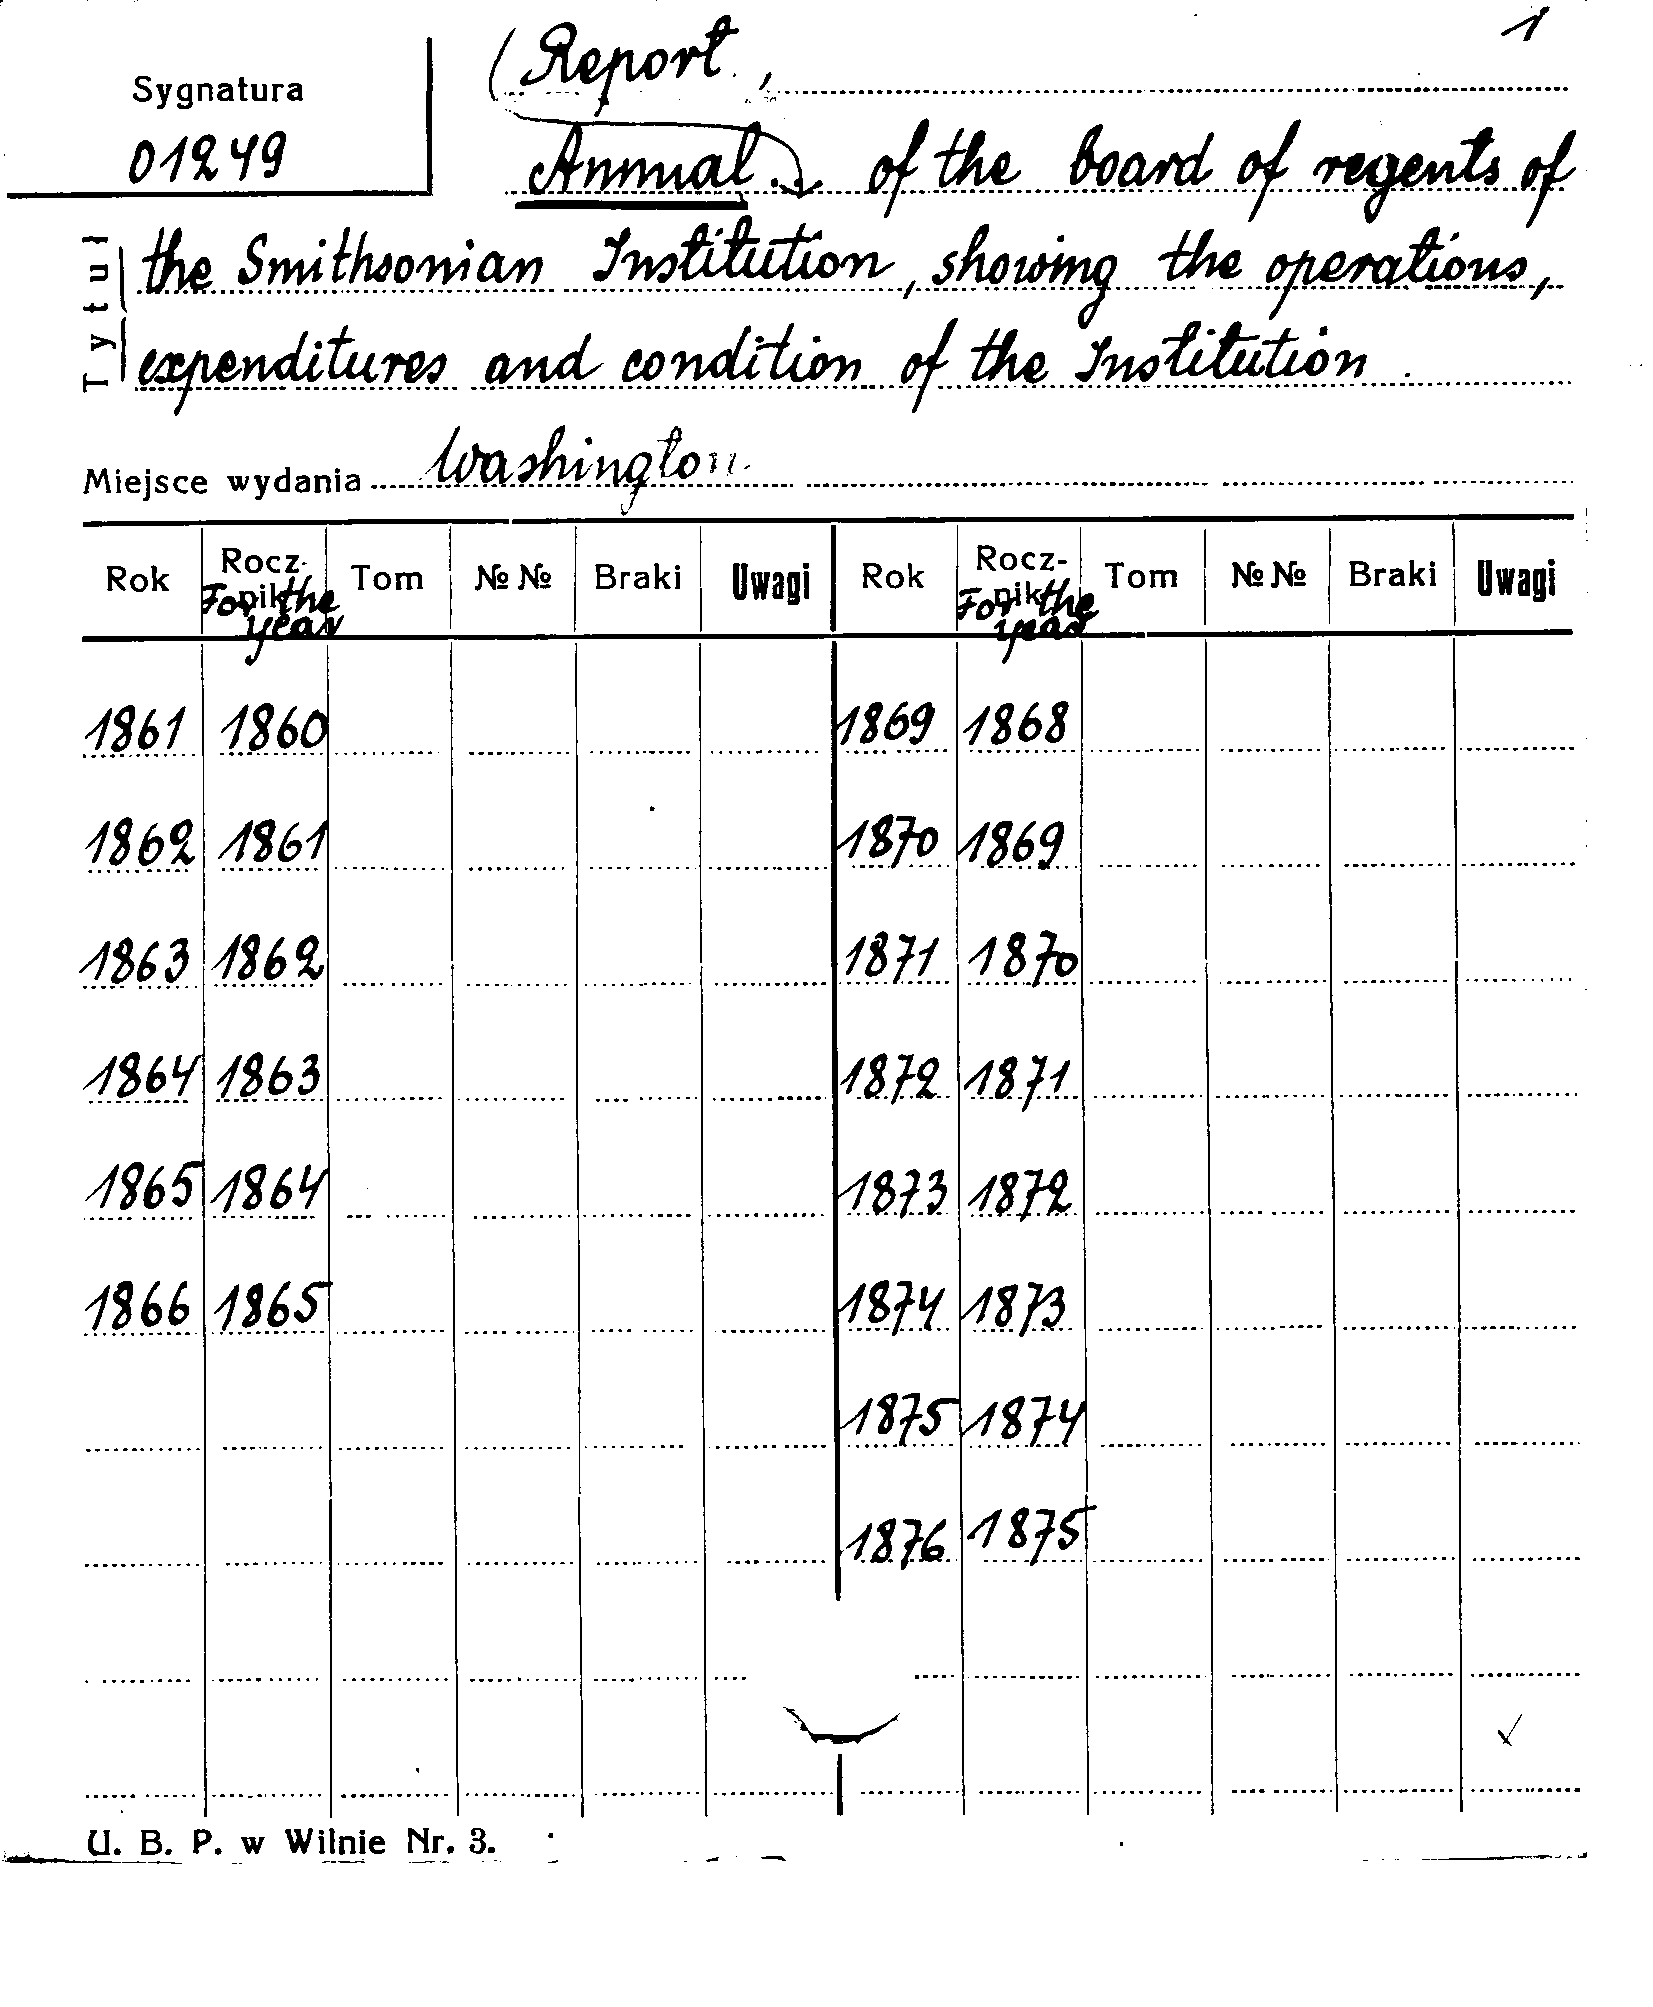 1
Sygnatura
01249
(Report,
Annual of the board of regents of
the Smithsonian Institution, showing the operations,
expenditures and condition of the Institution.
Tytuł
Miejsce wydania Washington
Rok Rocz-nik For the year Tom №№ Braki Uwagi Rok Rocz-nik For the year Tom №№ Braki Uwagi
1861 1860 1869 1868
1862 1861 1870 1869
1863 1862 1871 1870
1864 1863 1872 1871
1865 1864 1873 1872
1866 1865 1874 1873
1875 1874
1876 1875
U. B. P. w Wilnie Nr. 3.